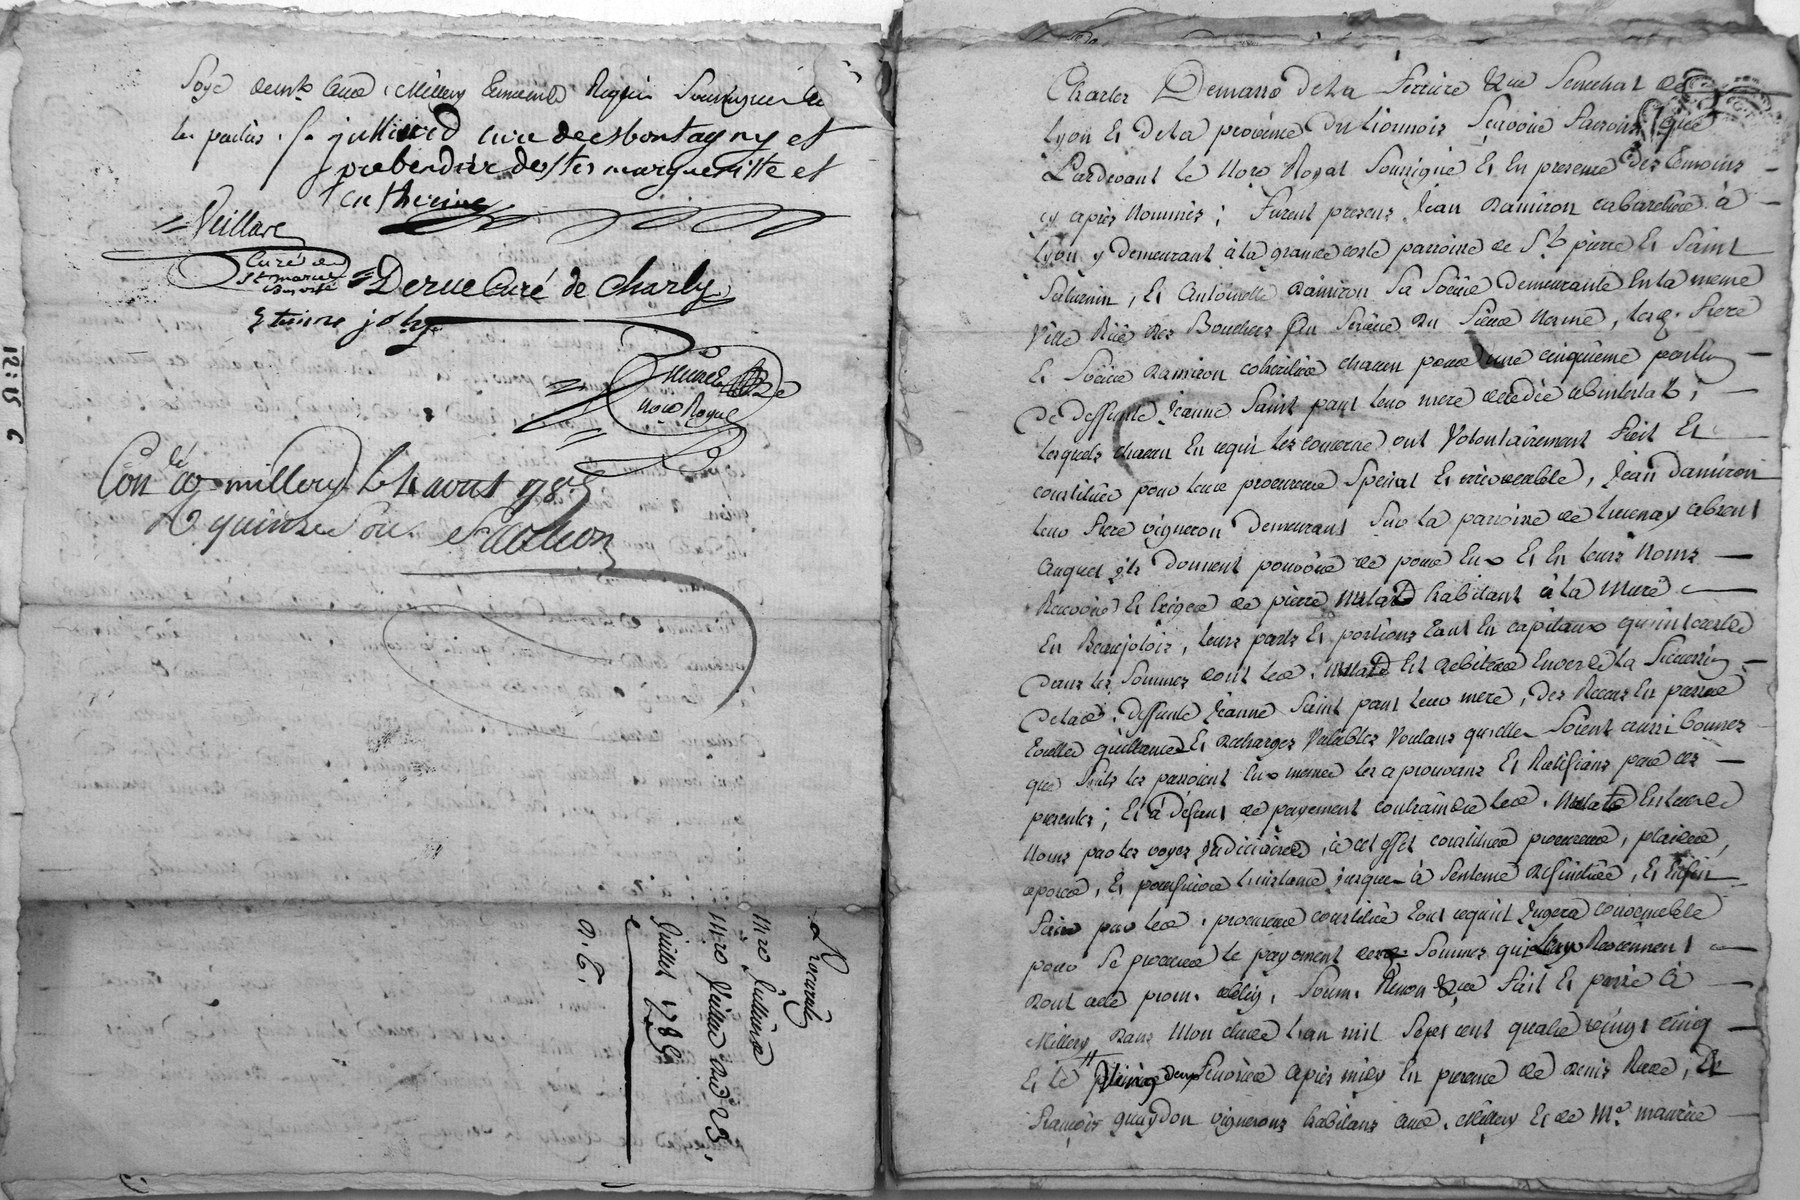 Soye demt aud. Millery temoins Requis Soussignés avec
les parties. /. julliard curé de montagny et
prebendier de stes marguerite et
catherine
Veillare
Curé de
St martin
Derue Curé de Charly
Etienne joly
nore Royal
Conlé a millery le 1 aout 1785
R quinze Sols
Procuraõn
Mre Jullierd
Mre Veillare du 23
Juillet 1785
a. C.
12: 15 6
Charles Demasso de la Ferriere &ca Senechal de
Lyon Et de la province du lionnois Scavoir faisons que
Pardevant le Nore Royal Soussigné Et En presence des temoins
cy après Nommés; furent presens Jean Damiron cabaretier à
Lyon y demeurant à la grande coste parroisse de St pierre Et Saint
Saturnin, Et Antoinette Damiron Sa Soeur Demeurante En la meme
Ville Rüe des Bouchers Du Sieur Nommé, lesq. frere
Et Soeur Damiron coheritiers chacun pour une cinquieme portion
De deffunte Jeanne Saint pant leur mere decedée abintestat;
lesquels chacun En ce qui les concerne ont Volontairement fait Et
constitué pour leur procureur Special Et irrevocable, Jean Damiron
leur frere vigneron Demeurant Sur la parroisse de lucenay absent
auquel ils Donnent pouvoir de pour Eux Et En leurs Noms
Recevoir Et Exiger de pierre habitant à la Mure
En Beaujolois, leurs parts Et portions tant En capitaux qu'interests
Dans les Sommes dont led. Est debiteur Envers la Succession
De lad. deffunte Jeanne Saint pant leur mere, Des Receus En passer
toutes quittances Et decharges Valables Voulant qu'elles Soient aussi bonnes
que S'ils les passoient Eux memes les aprouvans Et Ratifians par ces
presentes; Et à Défaut de payement contraindre led. Esdits
Noms par les voyes Judiciaires, à cet effet constituer procureur, plaider,
oposer, Et poursuivre l'instance jusques à Sentence Definitive, Et Enfin
faire par led. procureur constitué tout ce qu'il Jugera convenable
pour Se procurer le payement des Sommes qui leur Reviennent
Dont acte prom. oblig. Soum. Renon &ca fait Et passé à
Millery Dans Mon Etude l'an mil Sept cent quatre vingt cinq
Et le vingt deux Fevrier après midy En presence de Denis Rave, Et
François guaydon vignerons habitans aud. Millery Et de Me maurice